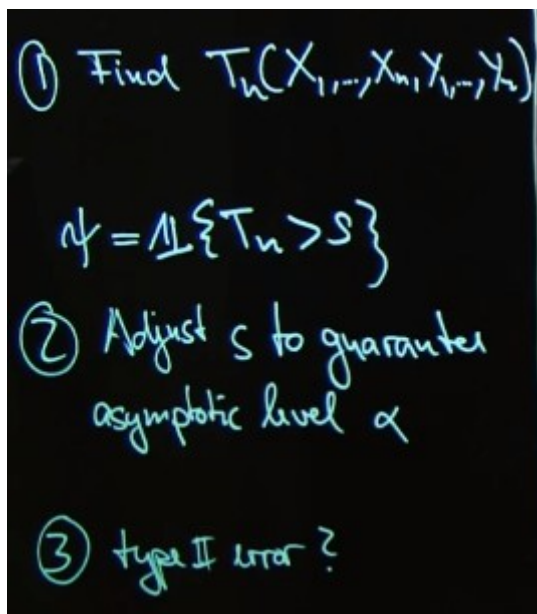 ① Find Tₙ(X₁,...,Xₙ,Y₁,...,Yₙ)
ψ = 𝟙{Tₙ > s}
② Adjust s to guarantee
asymptotic level α
③ type II error?